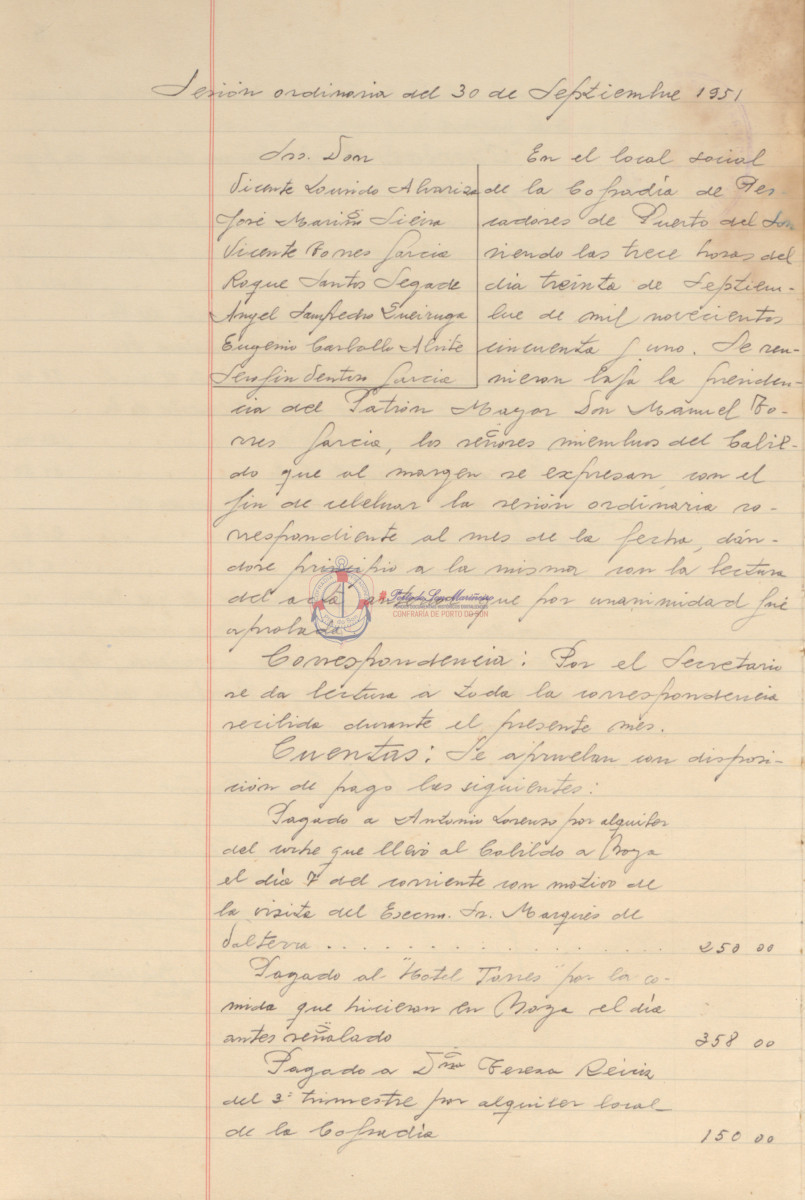 Sesión ordinaria del 30 de Septiembre 1951
Srs. Don
Vicente Lourido Alvariza
José Mariño Sieira
Vicente Torres Garcia
Roque Santos Segade
Angel Sampedro Queiruga
Eugenio Carballo Alvite
Serafin Ventoso Garcia
En el local social
de la Cofradía de Pes-
cadores de Puerto del Son
siendo las trece horas del
día treinta de Septiem-
bre de mil novecientos
cincuenta y uno. Se reu-
nieron bajo la presiden-
cia del Patrón Mayor Don Manuel To-
rres Garcia, los señores miembros del Cabil-
do que al margen se expresan, con el
fin de celebrar la sesión ordinaria co-
rrespondiente al mes de la fecha, dán-
dose principio a la misma con la lectura
del acta que por unanimidad fué
aprobada
CONFRARÍA DE PORTO DO SON
Correspondencia: Por el Secretario
se da lectura a toda la correspondencia
recibida durante el presente mes.
Cuentas: Se aprueban con disposi-
ción de pago las siguientes:
Pagado a Antonio Lorenzo por alquiler
del coche que llevó al Cabildo a Noya
el día 7 del corriente con motivo de
la visita del Excmo. Sr. Marqués de
Valterra . . . . . . . . . . . . . . . . 250 00
Pagado al "Hotel Torres" por la co-
mida que hicieron en Noya el día
antes señalado 358 00
Pagado a Dña Teresa
del 3º trimestre por alquiler local
de la Cofradía 150 00